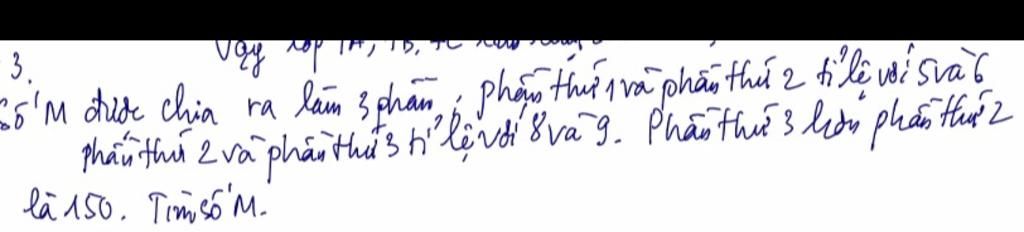 Vậy lớp 7A, 7B, 7C
3.
Số M được chia ra làm 3 phần, phần thứ 1 và phần thứ 2 tỉ lệ với 5 và 6
phần thứ 2 và phần thứ 3 tỉ lệ với 8 và 9. Phần thứ 3 hơn phần thứ 2
là 150. Tìm số M.